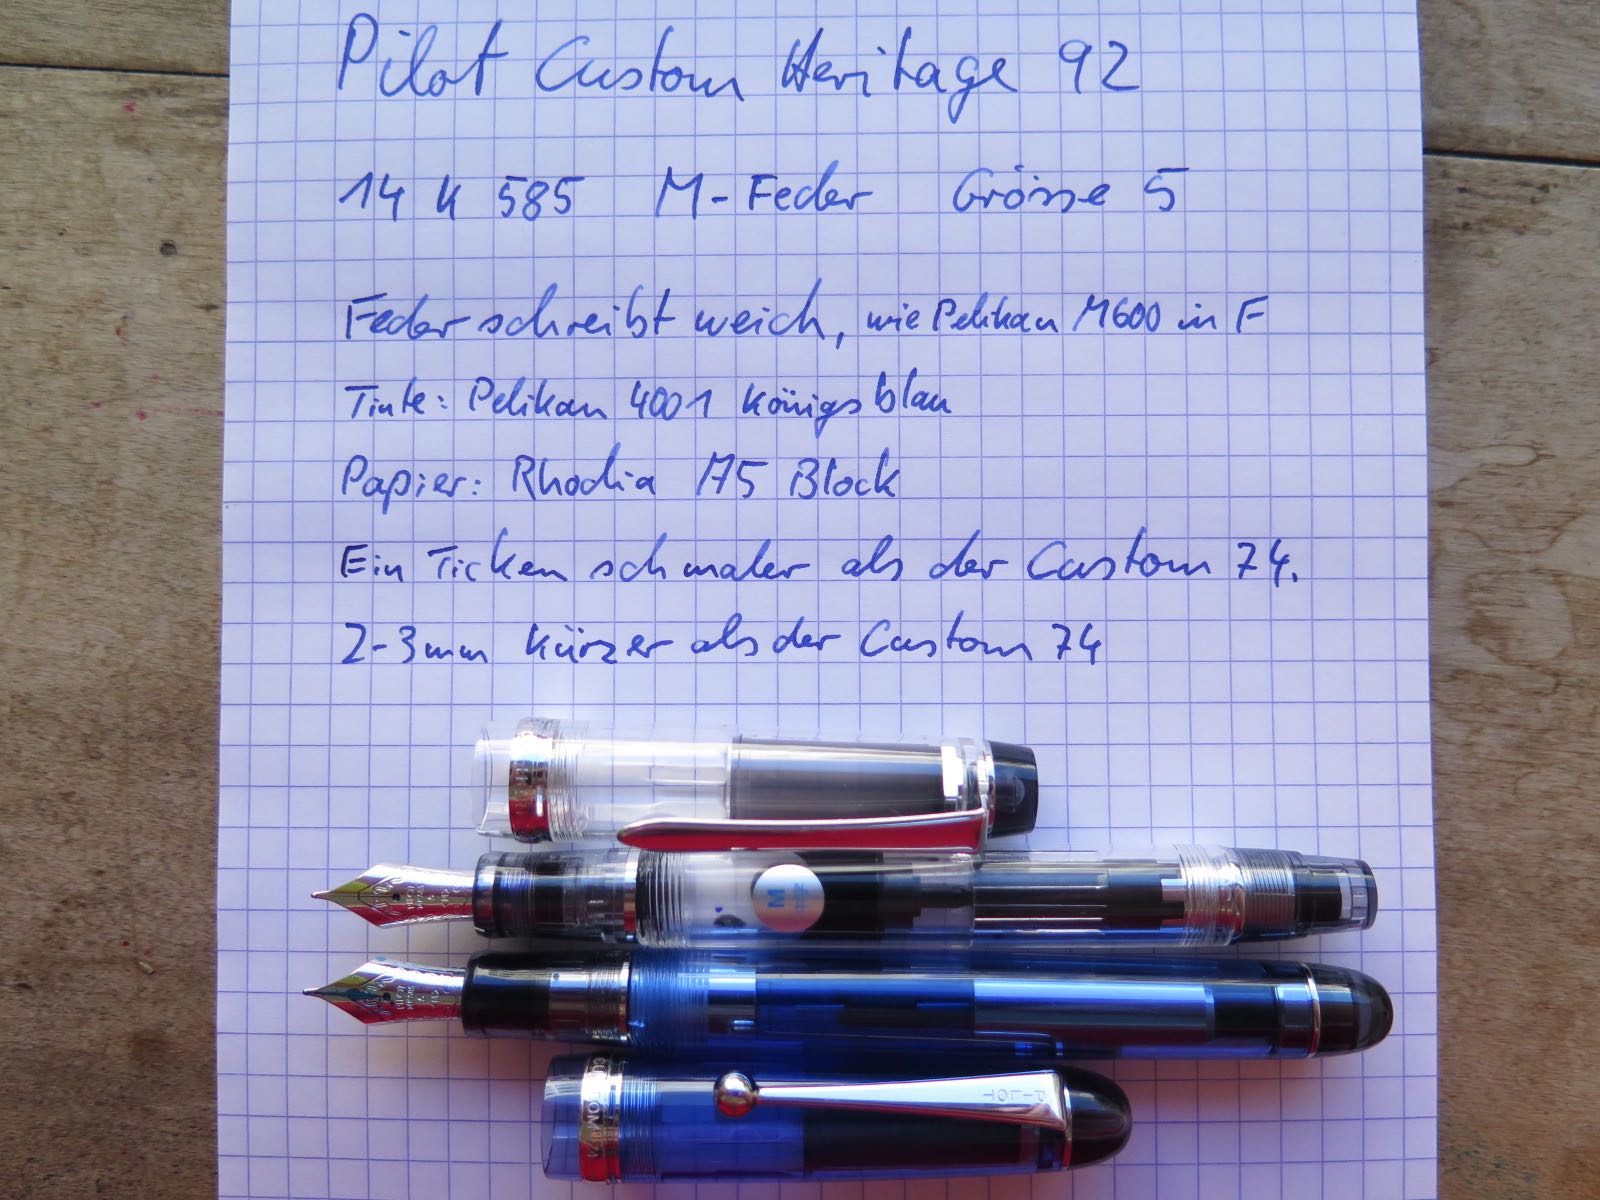 Pilot Custom Heritage 92
14 K 585 M-Feder Grösse 5
Feder schreibt weich, wie Pelikan M600 in F
Tinte: Pelikan 4001 Königsblau
Papier: Rhodia A5 Block
Ein Ticken schmaler als der Custom 74.
2-3mm kürzer als der Custom 74
M
PILOT